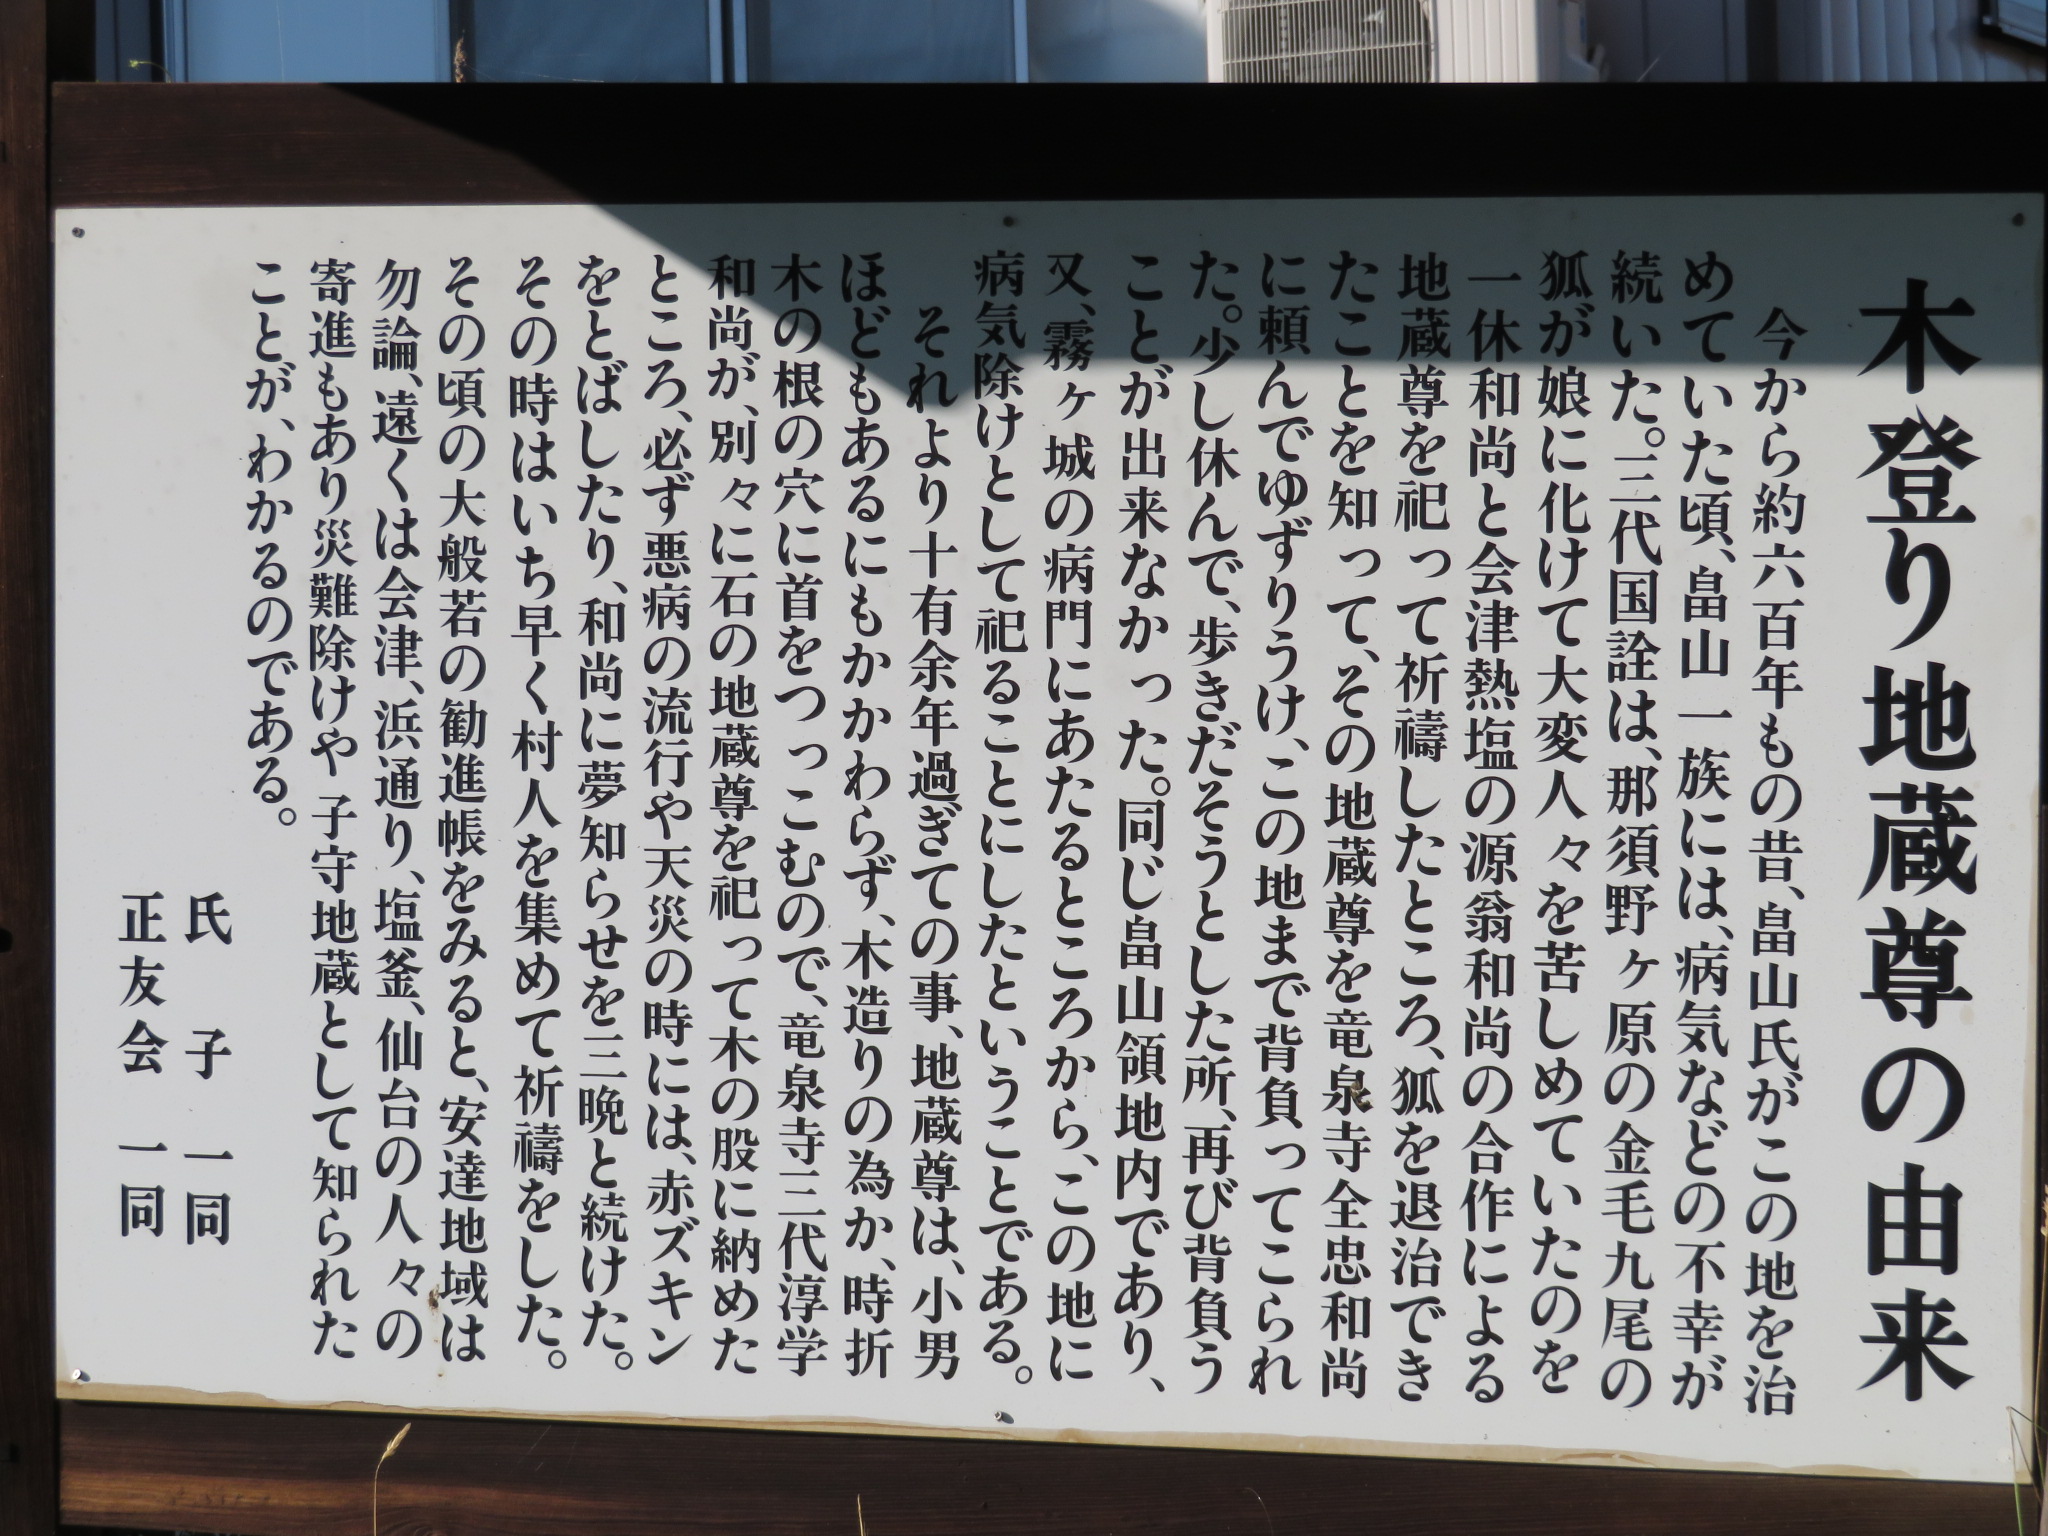 木登り地蔵尊の由来
今から約六百年もの昔、畠山氏がこの地を治
めていた頃、畠山一族には、病気などの不幸が
続いた。三代国詮は、那須野ヶ原の金毛九尾の
狐が娘に化けて大変人々を苦しめていたのを
一休和尚と会津熱塩の源翁和尚の合作による
地蔵尊を祀って祈禱したところ、狐を退治でき
たことを知って、その地蔵尊を竜泉寺全忠和尚
に頼んでゆずりうけ、この地まで背負ってこられ
た。少し休んで、歩きだそうとした所、再び背負う
ことが出来なかった。同じ畠山領地内であり、
又、霧ヶ城の病門にあたるところから、この地に
病気除けとして祀ることにしたということである。
それより十有余年過ぎての事、地蔵尊は、小男
ほどもあるにもかかわらず、木造りの為か、時折
木の根の穴に首をつっこむので、竜泉寺三代淳学
和尚が、別々に石の地蔵尊を祀って木の股に納めた
ところ、必ず悪病の流行や天災の時には、赤ズキン
をとばしたり、和尚に夢知らせを三晩と続けた。
その時はいち早く村人を集めて祈禱をした。
その頃の大般若の勧進帳をみると、安達地域は
勿論、遠くは会津、浜通り、塩釜、仙台の人々の
寄進もあり災難除けや子守地蔵として知られた
ことが、わかるのである。
氏子一同
正友会一同